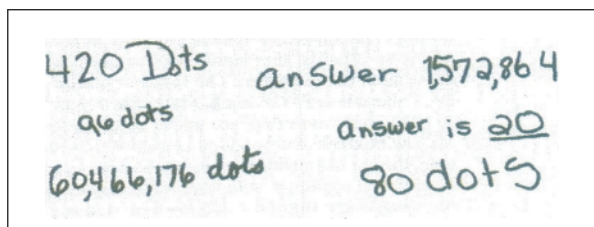 420 Dots
answer 1,572,864
96 dots
answer is 20
60,466,176 dots
80 dots